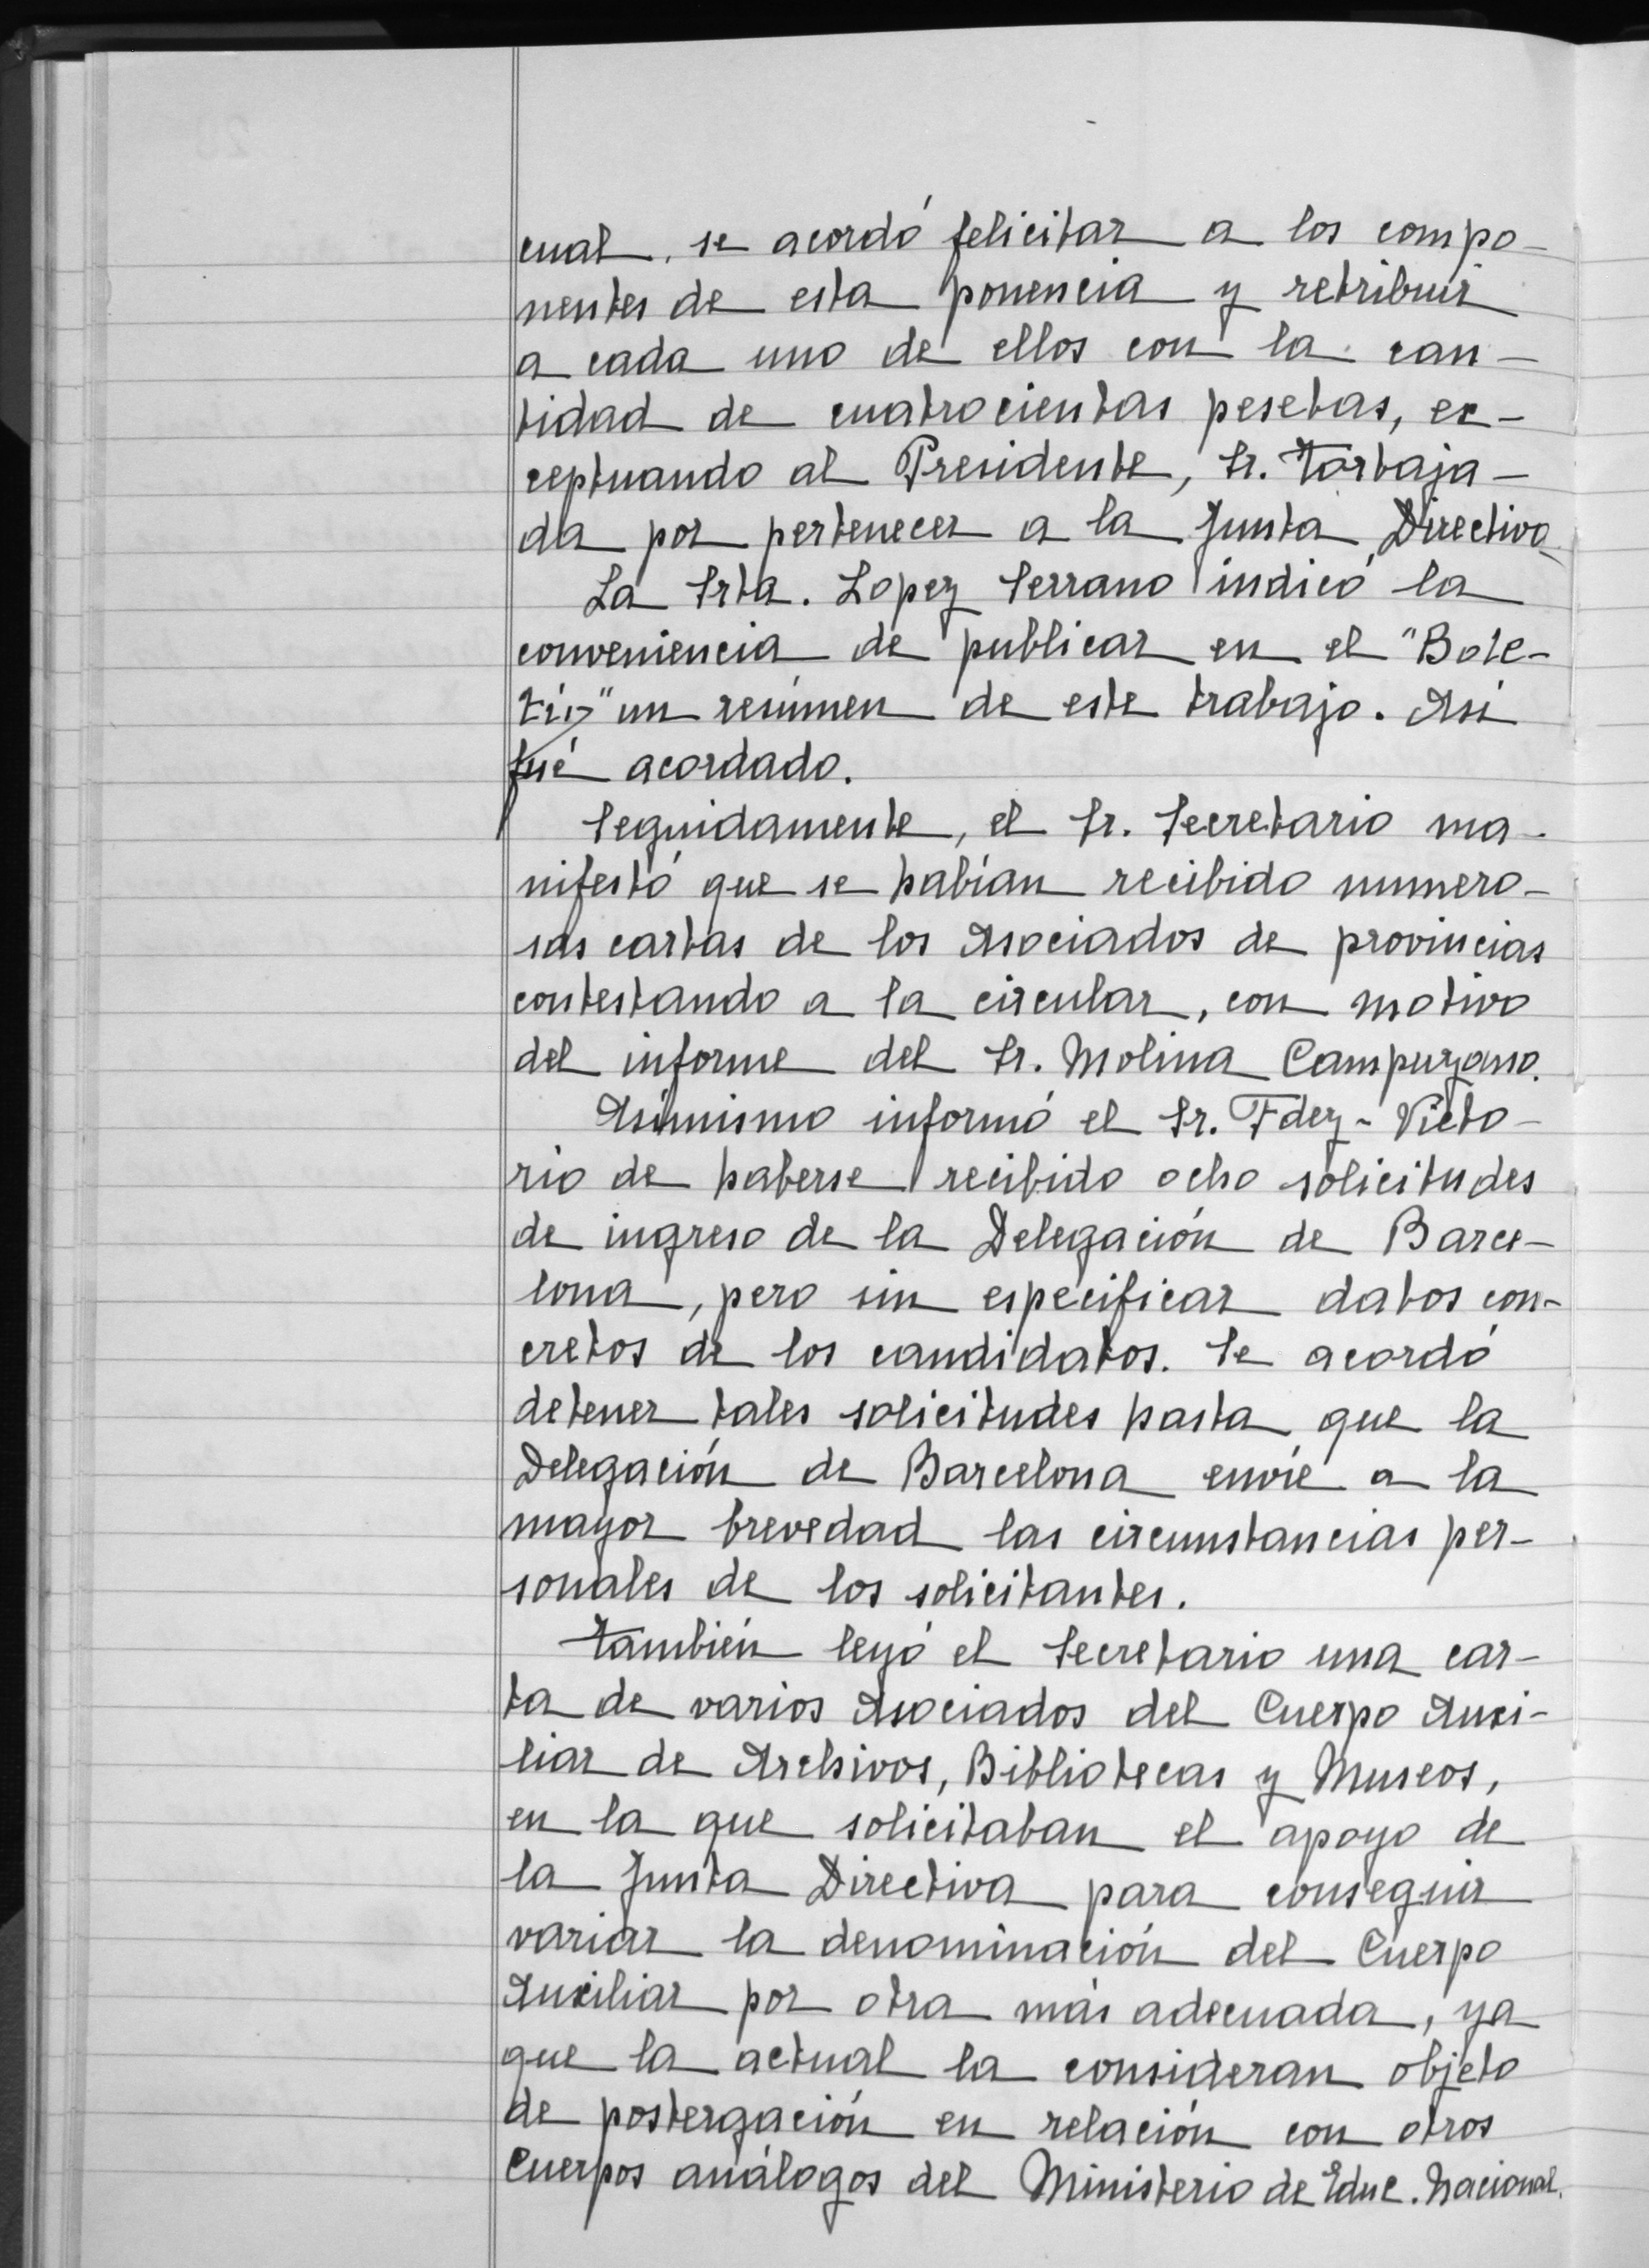 cual, se acordó felicitar a los compo-
nentes de esta ponencia y retribuir
a cada uno de ellos con la can-
tidad de cuatrocientas pesetas, ex-
ceptuando al Presidente, Sr. Tortaja-
da por pertenecer a la Junta Directiva.
La Srta. Lopez Serrano indicó la
conveniencia de publicar en el "Bole-
tín" un resúmen de este trabajo. Así
fué acordado.
Seguidamente, el Sr. Secretario ma-
nifestó que se habían recibido numero-
sas cartas de los Asociados de provincias
contestando a la circular, con motivo
del informe del Sr. Molina Campuzano.
Asimismo informó el Sr. Fdez-Victo-
rio de haberse recibido ocho solicitudes
de ingreso de la Delegación de Barce-
lona, pero sin especificar datos con-
cretos de los candidatos. Se acordó
detener tales solicitudes hasta que la
Delegación de Barcelona envíe a la
mayor brevedad las circunstancias per-
sonales de los solicitantes.
También leyó el Secretario una car-
ta de varios Asociados del Cuerpo Auxi-
liar de Archivos, Bibliotecas y Museos,
en la que solicitaban el apoyo de
la Junta Directiva para conseguir
variar la denominación del Cuerpo
Auxiliar por otra más adecuada, ya
que la actual la consideran objeto
de postergación en relación con otros
Cuerpos análogos del Ministerio de Educ. Nacional.